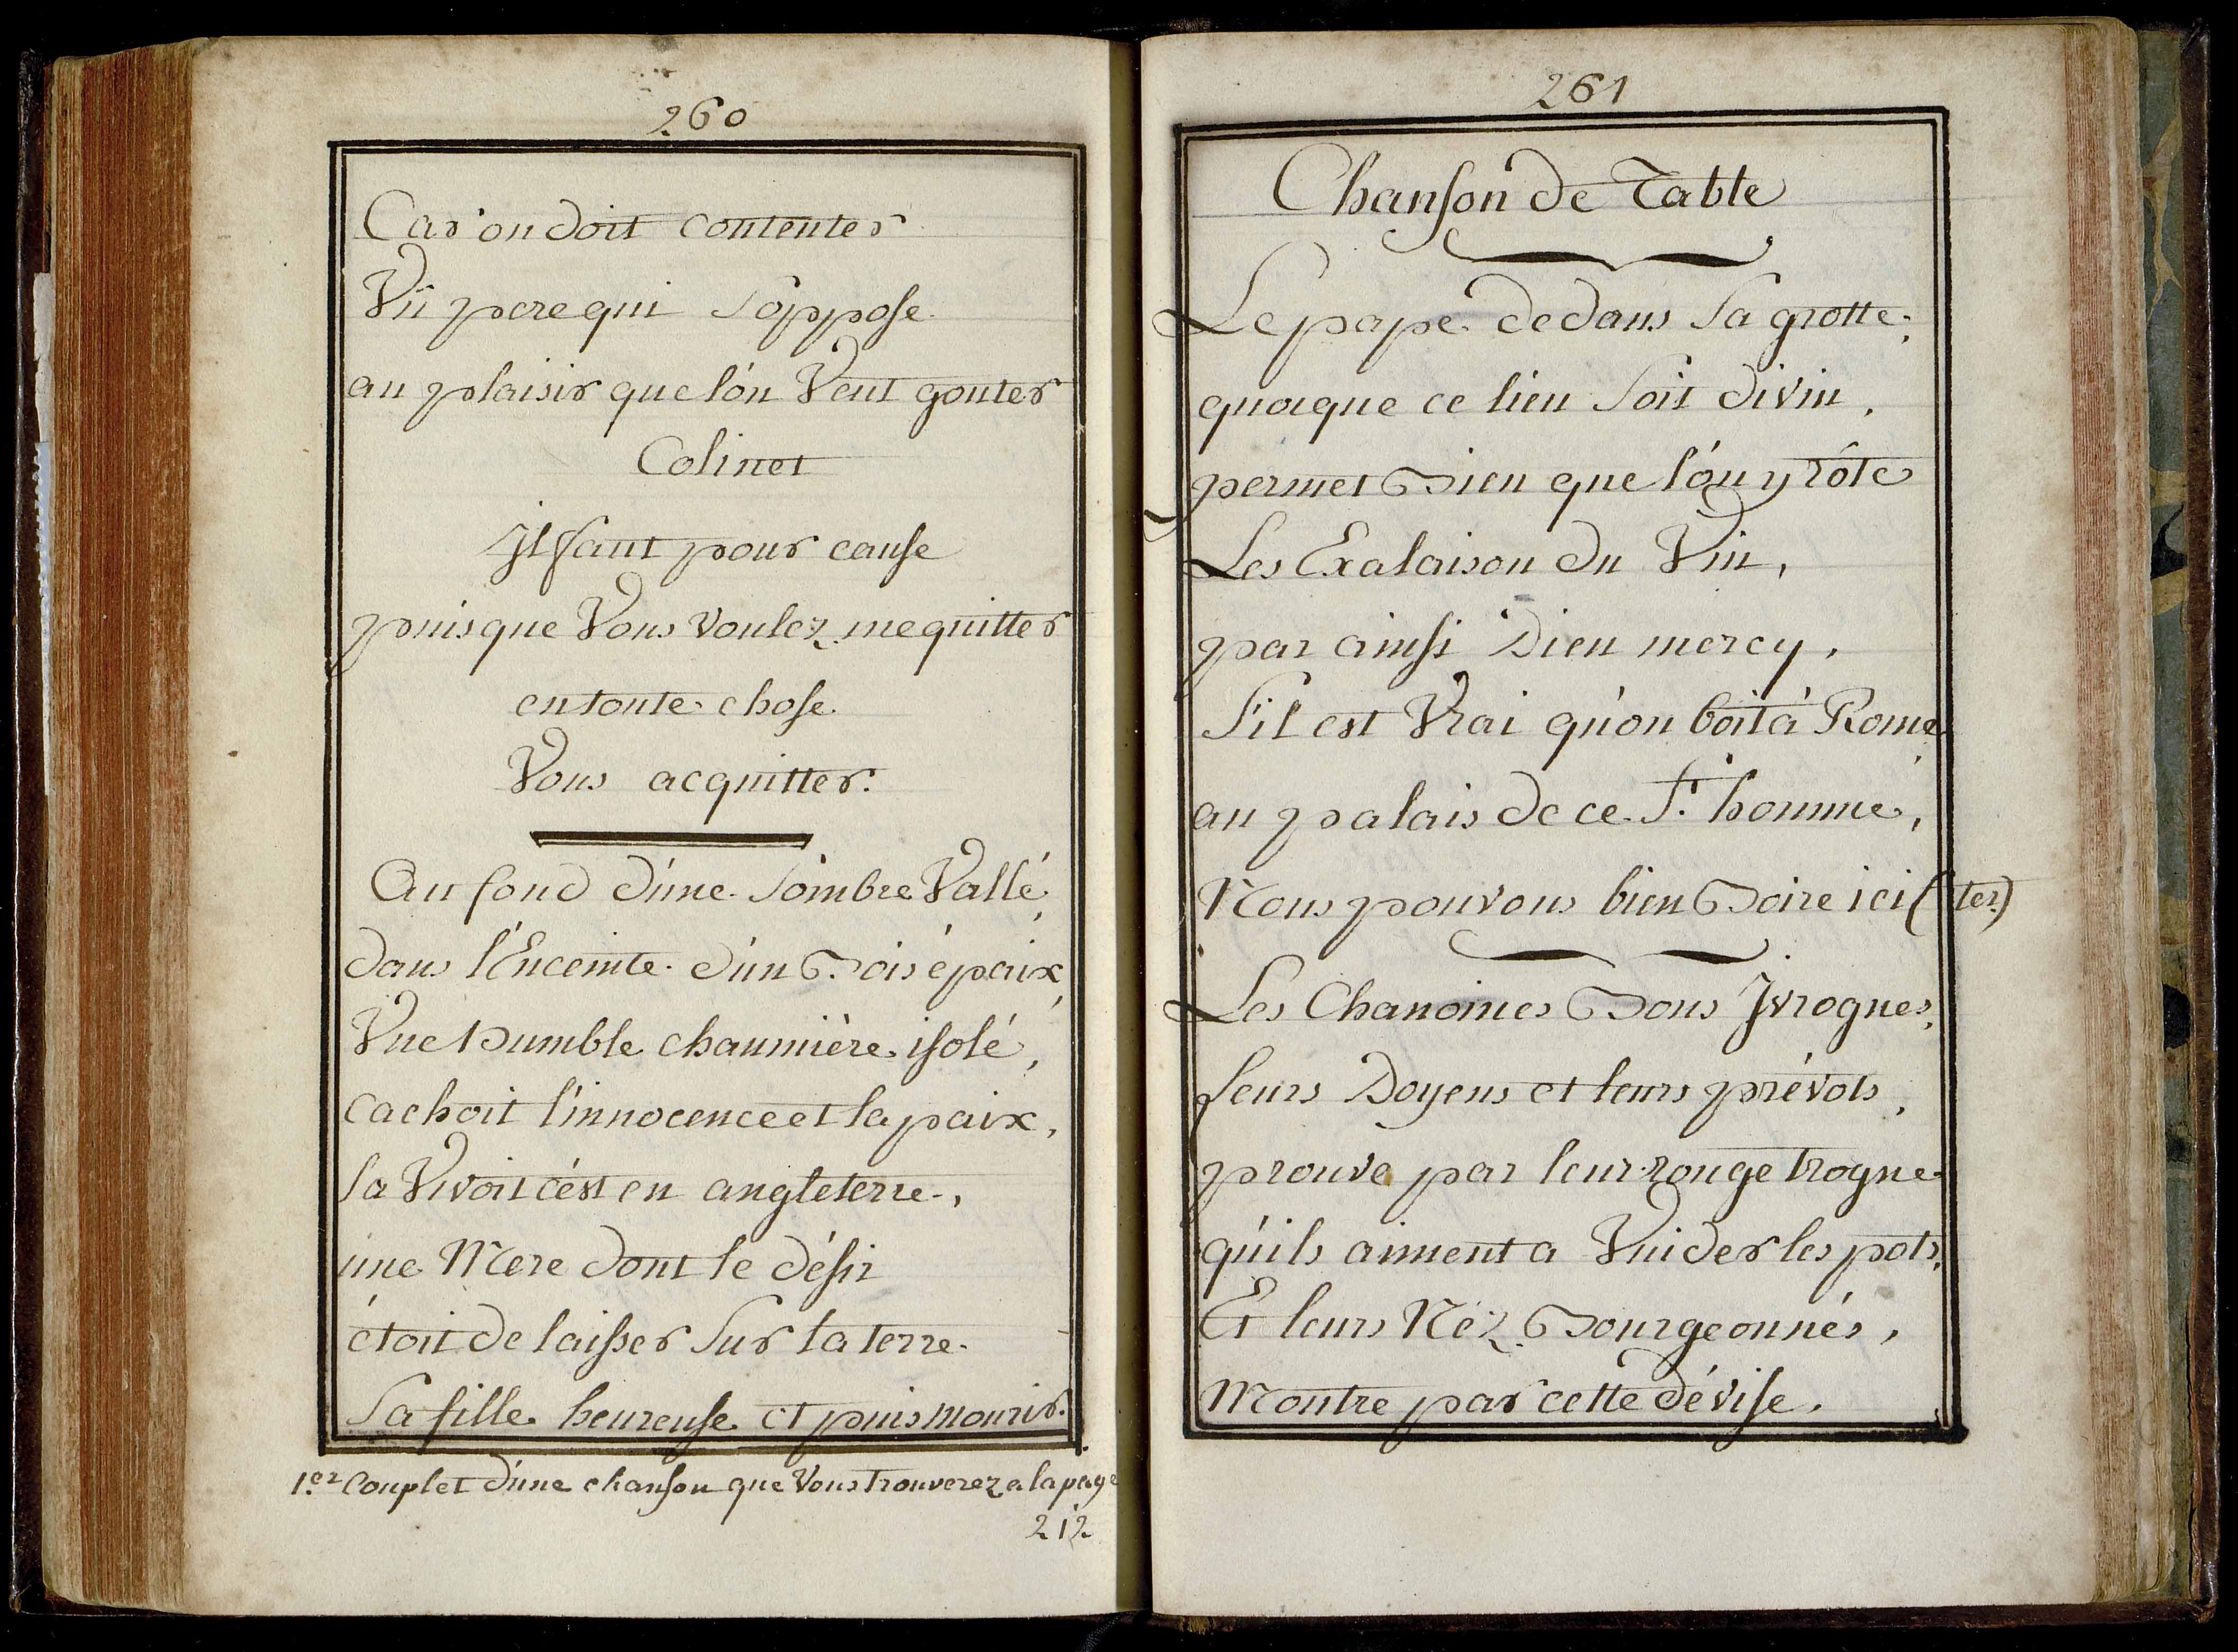 260
Car on doit contenter
Vn pere qui s'oppose
au plaisir que l'on Veut gouter
Colinet
Il faut pour cause
puisque Vous voulez me quitter
en toute chose
Vous acquitter.
Au fond d'une Sombre Vallé,
dans l'Enceinte d'un Bois épaix,
Vne humble chaumière isolé,
cachoit l'innocence et la paix,
la Vivoit c'est en angleterre,
une Mere dont le désir
étoit de laisser Sur la terre
Sa fille heureuse et puis mourir.
1.er Couplet d'une chanson que Vous trouverez a la page
212
261
Chanson de Table
Le pape dedans Sa grotte,
quoique ce lieu Soit divin,
permet Bien que l'on y rôte
Les Exalaison du Vin,
par ainsi Dieu mercy,
S'il est Vrai qu'on boit à Rome
au palais de ce St. homme,
Nous pouvons bien Boire ici (ter)
Les Chanoines Bons Ivrognes,
leurs Doyens et leurs prévots,
prouve par leur rouge trogne
qu'ils aiment a Vuider les pots,
Et leurs Néz Bourgeonnés,
Montre par cette dévise,